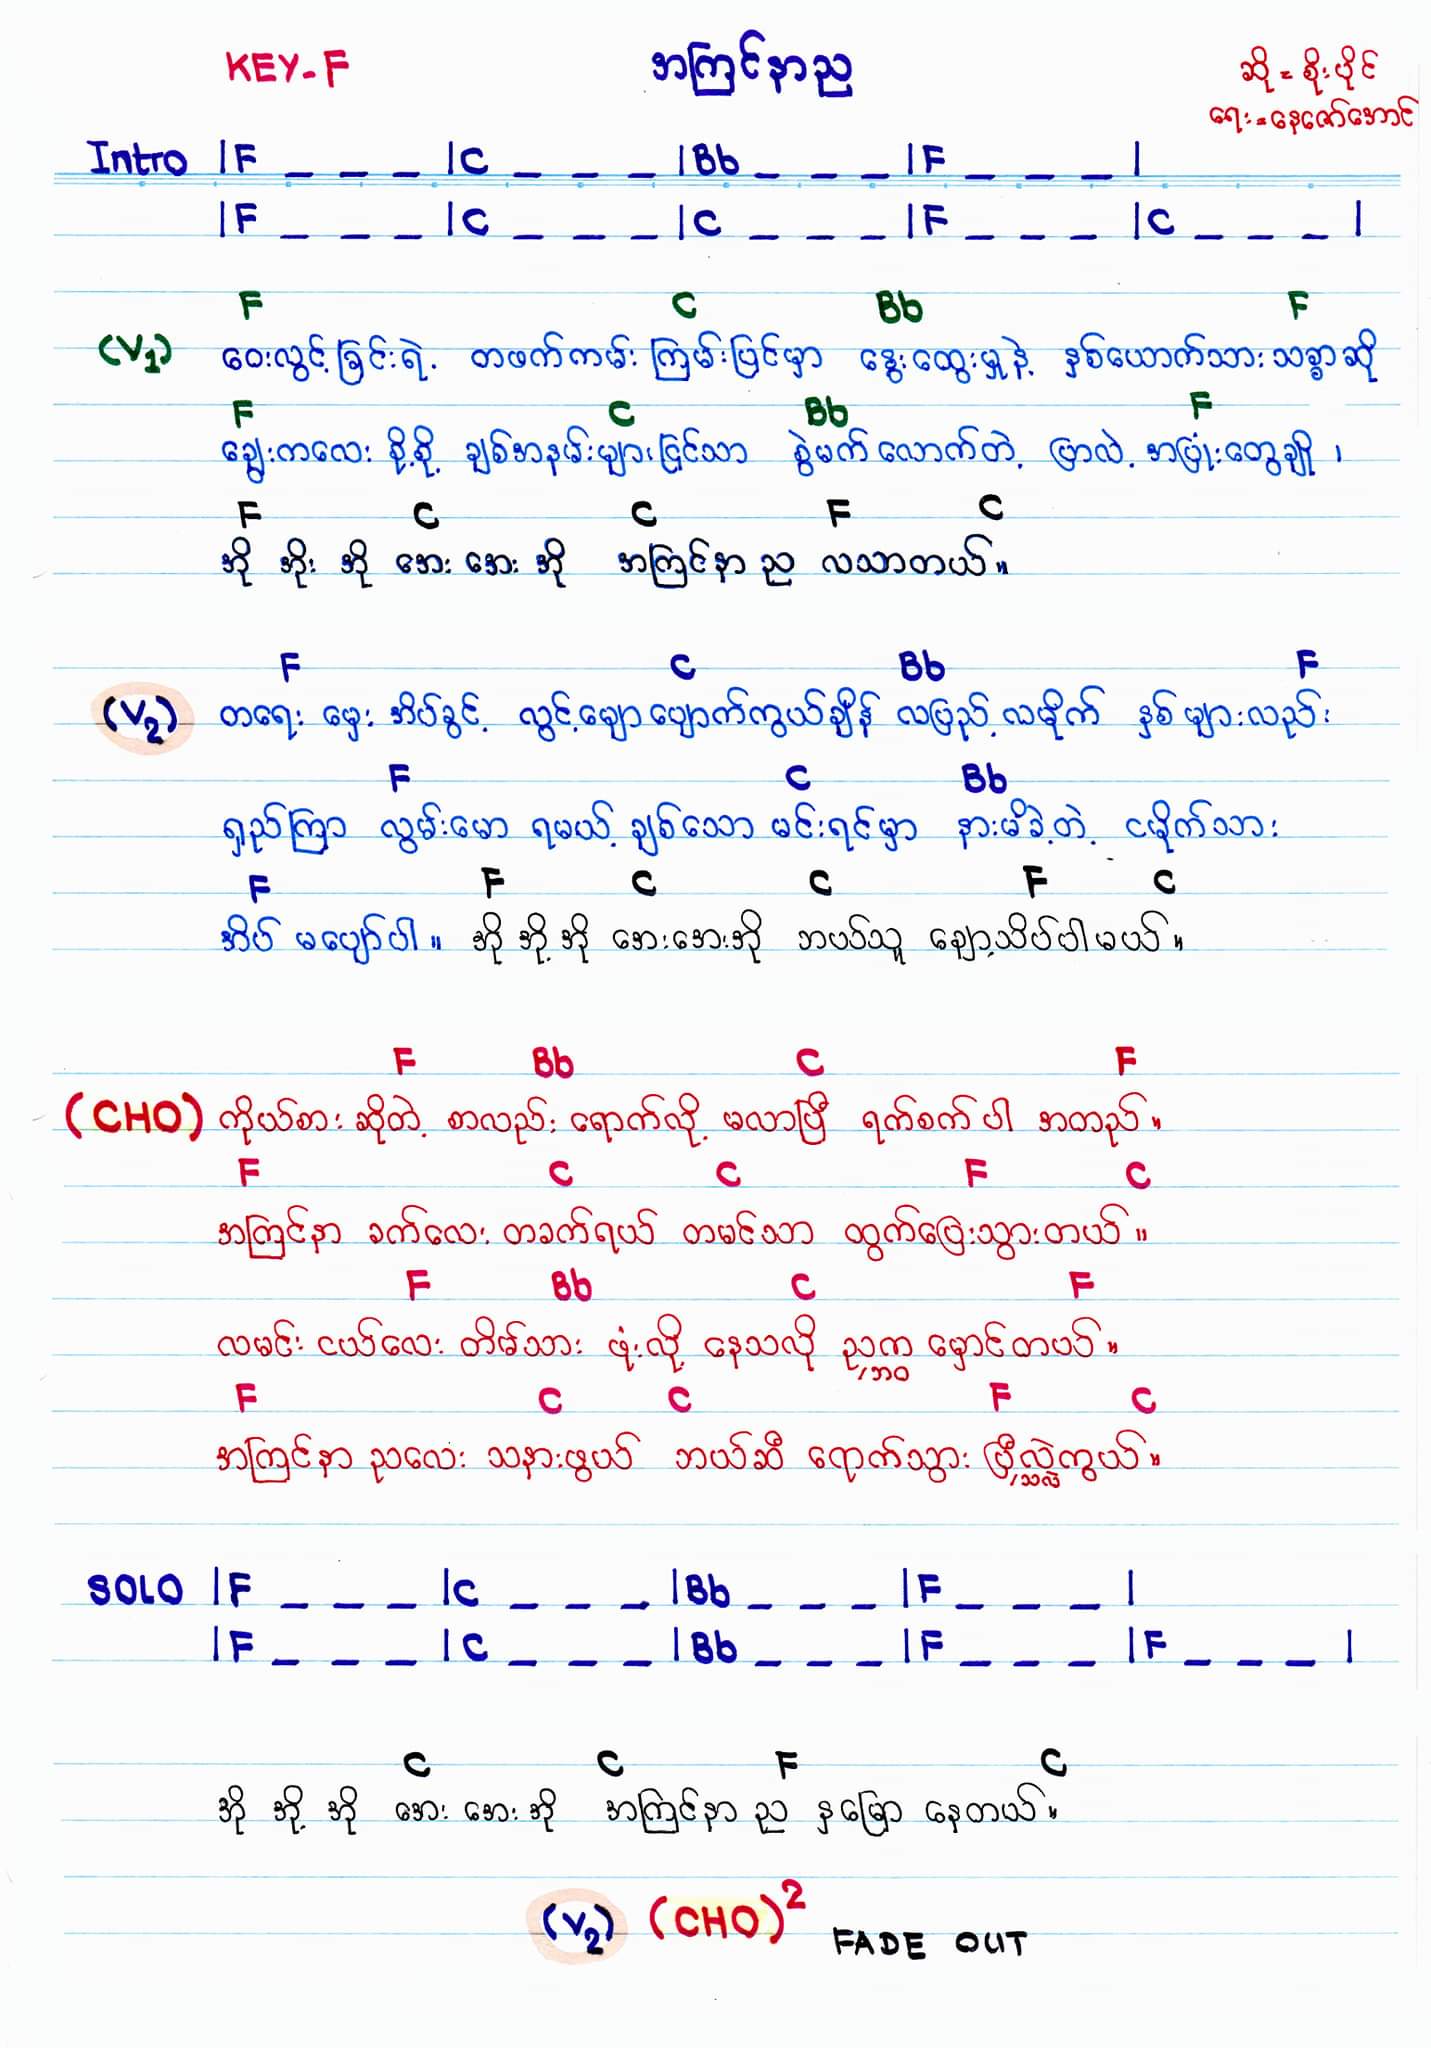 KEY-F အကြင်နာည ဆို = စိုးပိုင်
ရေး = နေဇော်အောင်
Intro |F _ _ _ |C _ _ _ |Bb _ _ _ |F _ _ _ |
|F _ _ _ |C _ _ _ |C _ _ _ |F _ _ _ |C _ _ _ |
F C Bb F
(V1) ဝေးလွင့်ခြင်းရဲ့ တဖက်ကမ်း ကြမ်းပြင်မှာ နွေးထွေးမှုနဲ့ နှစ်ယောက်သား သစ္စာဆို
F C Bb F
ချွေးကလေး စို့စို့ ချစ်အနမ်းများ၊ ငြင်သာ စွဲမက်လောက်တဲ့ ပြာလဲ့ အပြုံးတွေချို ၊
F C C F C
အို အိုး အို အေး အေး အို အကြင်နာ ည လသာတယ်။
F C Bb F
(V2) တရေး မှေး အိပ်ခွင့် လွင့်မျော ပျောက်ကွယ်ချိန် လပြည့် လမိုက် နှစ် များလည်း
F C Bb
ရှည်ကြာ လွမ်းမော ရမယ့် ချစ်သော မင်းရင်မှာ နားမိခဲ့တဲ့ ငမိုက်သား
F F C C F C
အိပ် မပျော်ပါ။ အို အို့ အို အေးအေးအို ဘယ်သူ ချော့သိပ်ပါမယ်။
F Bb C F
(CHO) ကိုယ်စား ဆိုတဲ့ စာလည်း ရောက်လို့ မလာပြီ ရက်စက်ပါ အတည်။
F C C F C
အကြင်နာ ခက်လေး တခက်ရယ် တမင်သာ ထွက်ပြေးသွားတယ်။
F Bb C F
လမင်း ငယ်လေး တိမ်သား ဖုံးလို့ နေသလို ညဘဝ မှောင်တယ်။
F C C F C
အကြင်နာ ညလေး သနားဖွယ် ဘယ်ဆီ ရောက်သွား ပြီလဲကွယ်။
SOLO |F _ _ _ |C _ _ _ |Bb _ _ _ |F _ _ _ |
|F _ _ _ |C _ _ _ |Bb _ _ _ |F _ _ _ |F _ _ _ |
C C F C
အို အို့ အို အေး အေးအို အကြင်နာ ည နှမြော နေတယ်။
(V2) (CHO)2 FADE OUT